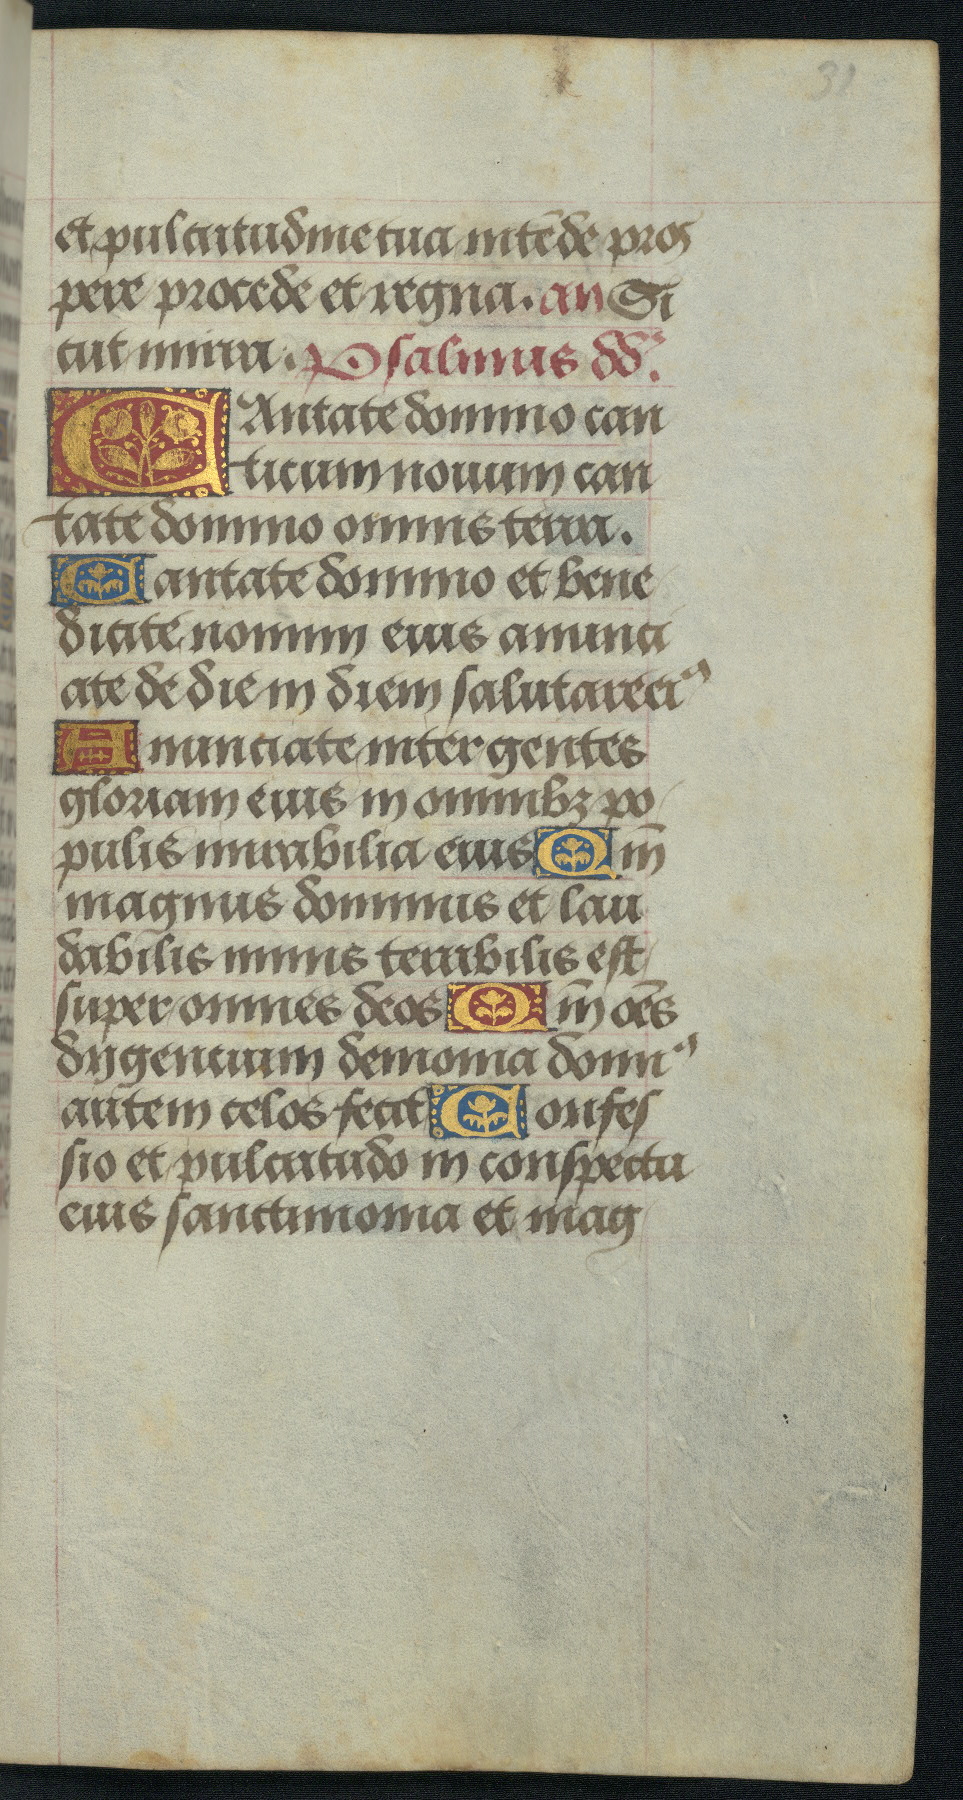 31
et pulcritudine tua intēde pros
pere procede et regna. an Si
cut mirra. Psalmus dd.
CAntate domino can
ticum nouum can
tate domino omnis terra.
Cantate domino et bene
dicite nomini eius anunci
ate de die in diem salutare ei⁹
Anunciate inter gentes
gloriam eius in omnibꝫ po
pulis mirabilia eius Qm̄
magnus dominus et lau
dabilis nimis terribilis est
super omnes deos Qm̄ oēs
dij gentium demonia domi⁹
autem celos fecit Confes
sio et pulcritudo in conspectu
eius sanctimonia et mag